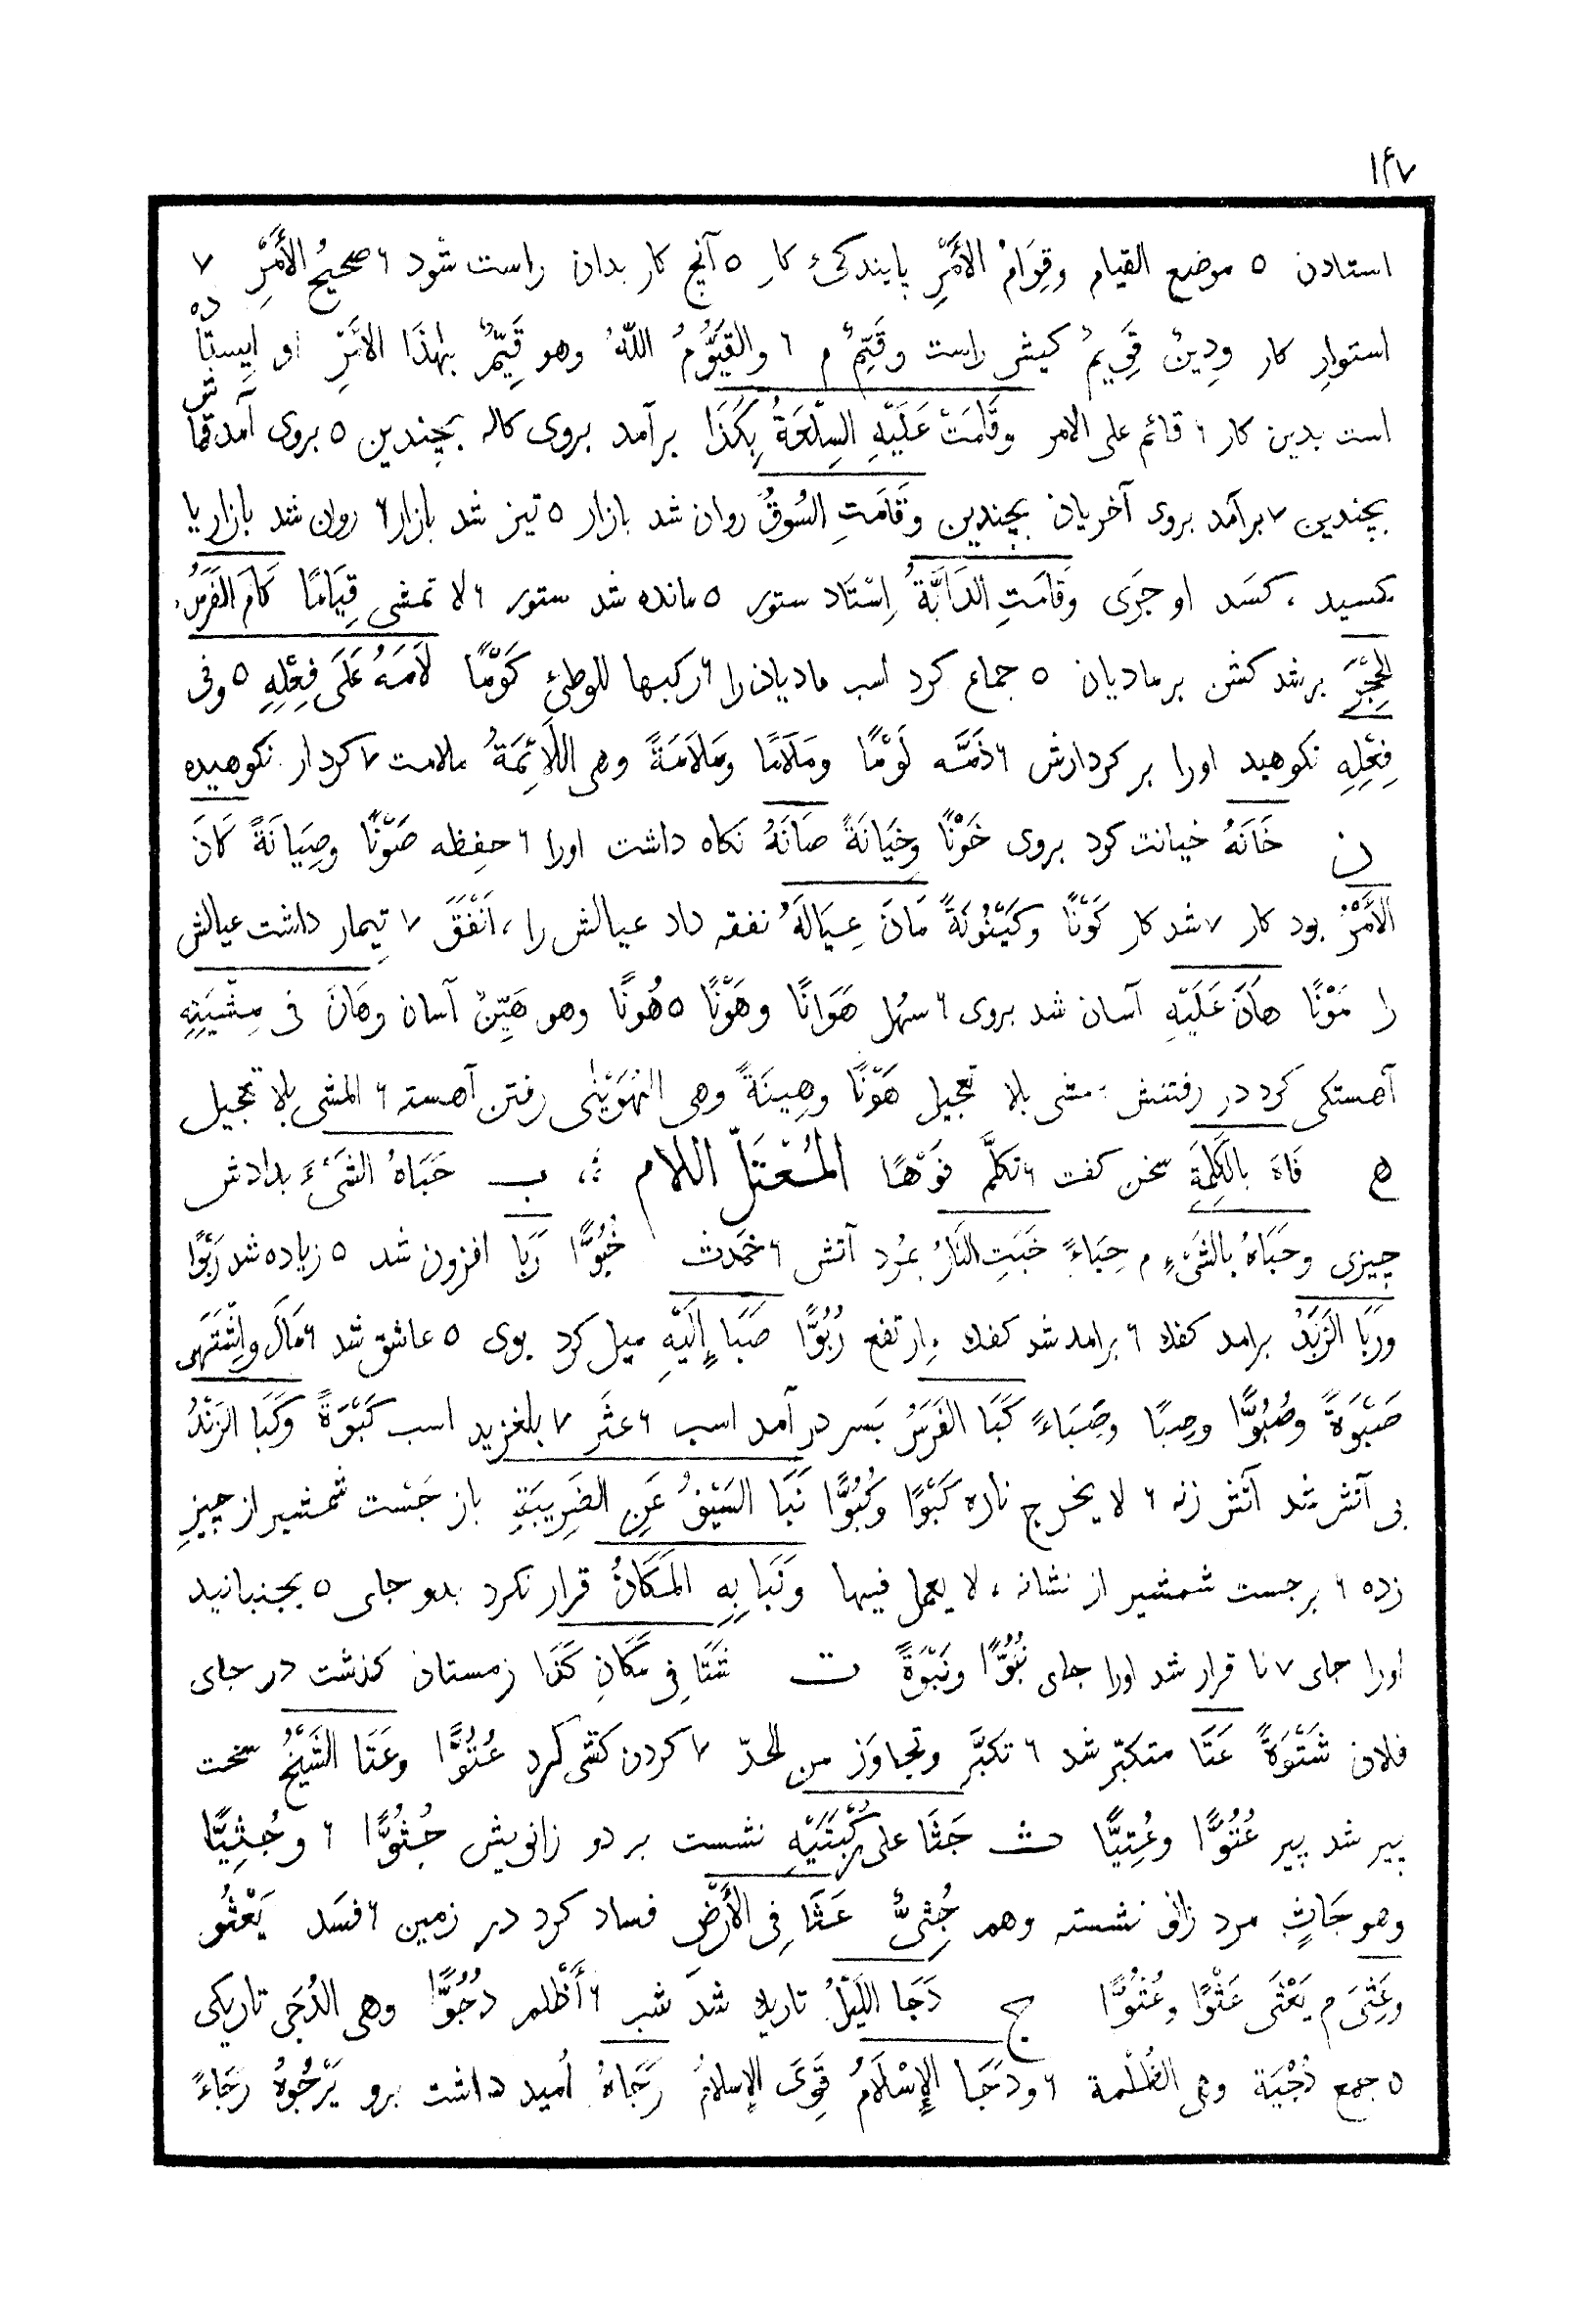 ۱۴۷
استادن ٥ موضع القيام وقِوَامُ الأَمْرِ پايندكىء كار ٥ آنج كار بدان راست شود ٦ صحيحُ الأَمْرِ ٧
استوارِ كار ودِينٌ قَوِيمٌ كيش راست وقَيِّمٌ م ٦ والقَيُّومُ اللّهُ وهو قَيِّمٌ بهٰذَا الأَمْرِ او ايستاده
است بدين كار ٦ قائم على الامر وقَامَتْ عَلَيْهِ السِلْعَةُ بِكَذَا برآمد بروى كاله بچندين ٥ بروى آمد قماش
بچندين ٧ برآمد بروى آخريان بچندين وقَامَتِ السُوقُ روان شد بازار ٥ تيز شد بازار ٦ روان شد بازار يا
بكسيد ، كسَد او جَرَى وَقَامَتِ الدَابَّةُ اِسْتَاد ستور ٥ مانده شد ستور ٦ لا تمشى قِيَامًا كَامَ الفَرَسُ
الحِجْرَ بر شد كشن بر ماديان ٥ جماع كرد اسب ماديان را ٦ ركبها للوطىٔ كَوْمًا لَامَهُ عَلَى فِعْلِهِ ٥ وفى
فِعْلِهِ نكوهيد اورا بر كردارش ٦ ذَمَّه لَوْمًا ومَلَامًا ومَلَامَةً وهى اللَائِمَةُ ملامت ٧ كردار نكوهيده
ن خَانَهُ خيانت كرد بروى خَوْنًا وخِيَانَةً صَانَهُ نكاه داشت اورا ٦ حفِظه صَوْنًا وصِيَانَةً كَانَ
الأَمْرُ بود كار ٧ شد كار كَوْنًا وكَيْنُونَةً مَانَ عِيَالَهُ نفقه داد عيالش را ، اَنْفَقَ ٧ تيمار داشت عيالش
را مَوْنًا هَانَ عَلَيْهِ آسان شد بروى ٦ سهُل هَوَانًا وهَوْنًا ٥ هُونًا وهو هَيِّنٌ آسان وهَانَ فى مِشْيَتِهِ
آهستكى كرد در رفتنش ، مشى بلا تعجيل هَوْنًا وهِينَةً وهى الهُوَيْنٰى رفتن آهسته ٦ المشى بلا تعجيل
ه فَاهَ بالكَلِمَةِ سخن كفت ٦ تكلَّم فَوْهًا المُعْتَلّ اللام ب حَبَاهُ الشَىْءَ بدادش
چيزى وحَبَاهُ بالشَىْءِ م حِبَاءً خَبَتِ النَارُ بمُرد آتش ٦ خمَدت خُبُوًّا رَبَا افزون شد ٥ زياده شد رَبْوًا
ورَبَا الزَبَدُ برامد كفك ٦ برامده شد كفك ، ارتفع رُبُوًّا صَبَا إِلَيْهِ ميل كرد بوى ٥ عاشق شد ٦ مَالَ واِشْتَهَى
صَبْوَةً وصُبُوًّا وصِبًا وصَبَاءً كَبَا الفَرَسُ بَسر در آمد اسب ٦ عثَر ٧ بلغزيد اسب كَبْوَةً وكَبَا الزَنْدُ
بى آتش شد آتش زنه ٦ لا يخرج ناره كَبْوًا وكُبُوًّا نَبَا السَيْفُ عَنِ الضَرِيبَةِ باز جَست شمشير از چيزِ
زده ٦ برجست شمشير از نشانه ، لا يعمل فيها ونَبَا بِهِ المَكَانُ قرار نكرد بدو جاى ٥ بجنبانيد
اورا جاى ٧ نا قرار شد اورا جاى نُبُوًّا ونَبْوَةً ت شَتَا فِى مَكَانِ كَذَا زمستان كذشت در جاى
فلان شَتْوَةً عَتَا متكبّر شد ٦ تكبَّر وتجاوَز من الحدّ ٧ كردن كشى كرد عُتُوًّا وعَتَا الشَيْخُ سخت
پير شد پير عُتُوًّا وعُتِيًّا ث جَثَا على رُكْبَتَيْهِ نشست بر دو زانويش جُثُوًّا ٦ وجُثِيًّا
وهو جَاثٍ مرد زانو نشسته وهم جُثِىٌّ عَثَا فِى الأَرْضِ فساد كرد در زمين ٦ فسَد يَعْثُو
وعَثِىَ م يَعْثَى عَثْوًا وعُثُوًّا ج دَجَا اللَيْلُ تاريك شد شب ٦ أَظْلم دُجُوًّا وهى الدُجَى تاريكى
٥ جمع دُجْيَة وهى الظُلْمة ٦ ودَجَا الإِسْلَامُ قَوِىَ الإسلامُ رَجَاهُ اُميد داشت برو يَرْجُوهُ رَجَاءً